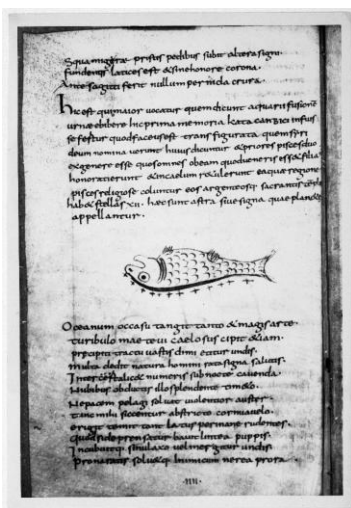 Squamigeræ pristis pedibus subit altera signi.
fundentis latices est & sine honore corona.
Ante sagitti feri nullum pernida crura.
Hic est qui maior vocatur quem dicunt aquarii fusione
urnae ebibere hic prima memoria
se fertur quod facous est transfigurata quem syri
deum nomina verunt huius dicuntur & priores pisces duo
ex genere esse quos omnes ob eam
honorauerunt & in caelum eaquæ regione
pisces religiose coluntur eos argenteosq; sacrant
hab& stellas XII. haec sunt astra siue signa quae planetæ
appellantur.
Oceanum occasu tangit tanto & magis arte
turibulo metu caelo sus cipit &iam.
precipiti tractu vastis dimittitur undis.
multa dedit natura homini rata signa salutis.
Inter & numeris sub nocte cauenda.
Nubibus obductis illo splendente tim&o.
Ne pacem pelagi soluat violentior auster.
Tunc mihi siccentur abstricto cornua velo.
erigit
quod si deprensa turbauit lintea puppis
Incubuitq; sinu laxo vel mergitur undis
Pronaratis soluitq; inimicum nerea prora